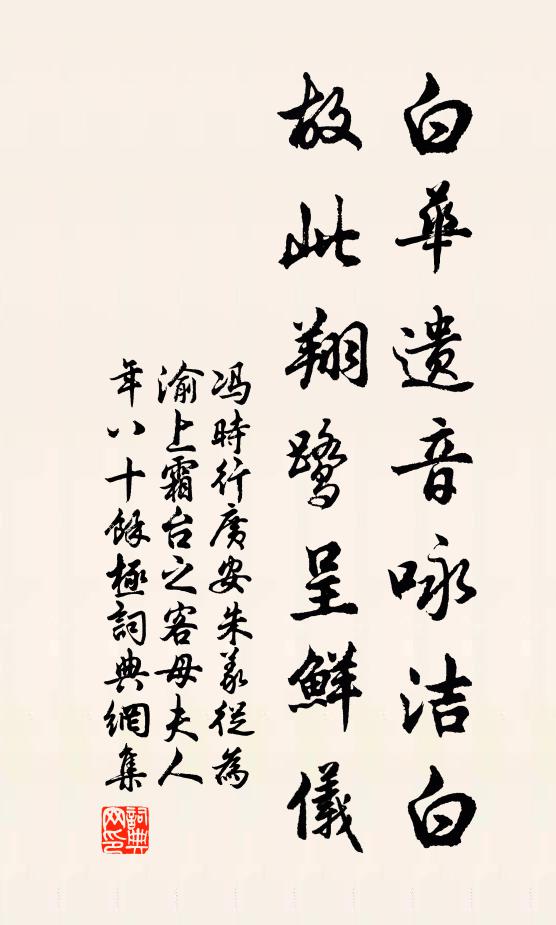 白華遺音咏洁白
故此翔鹭呈鮮儀
冯時行廣安朱義從為
渝上霜台之客母夫人
年八十餘極詞典網集
詞典
网印